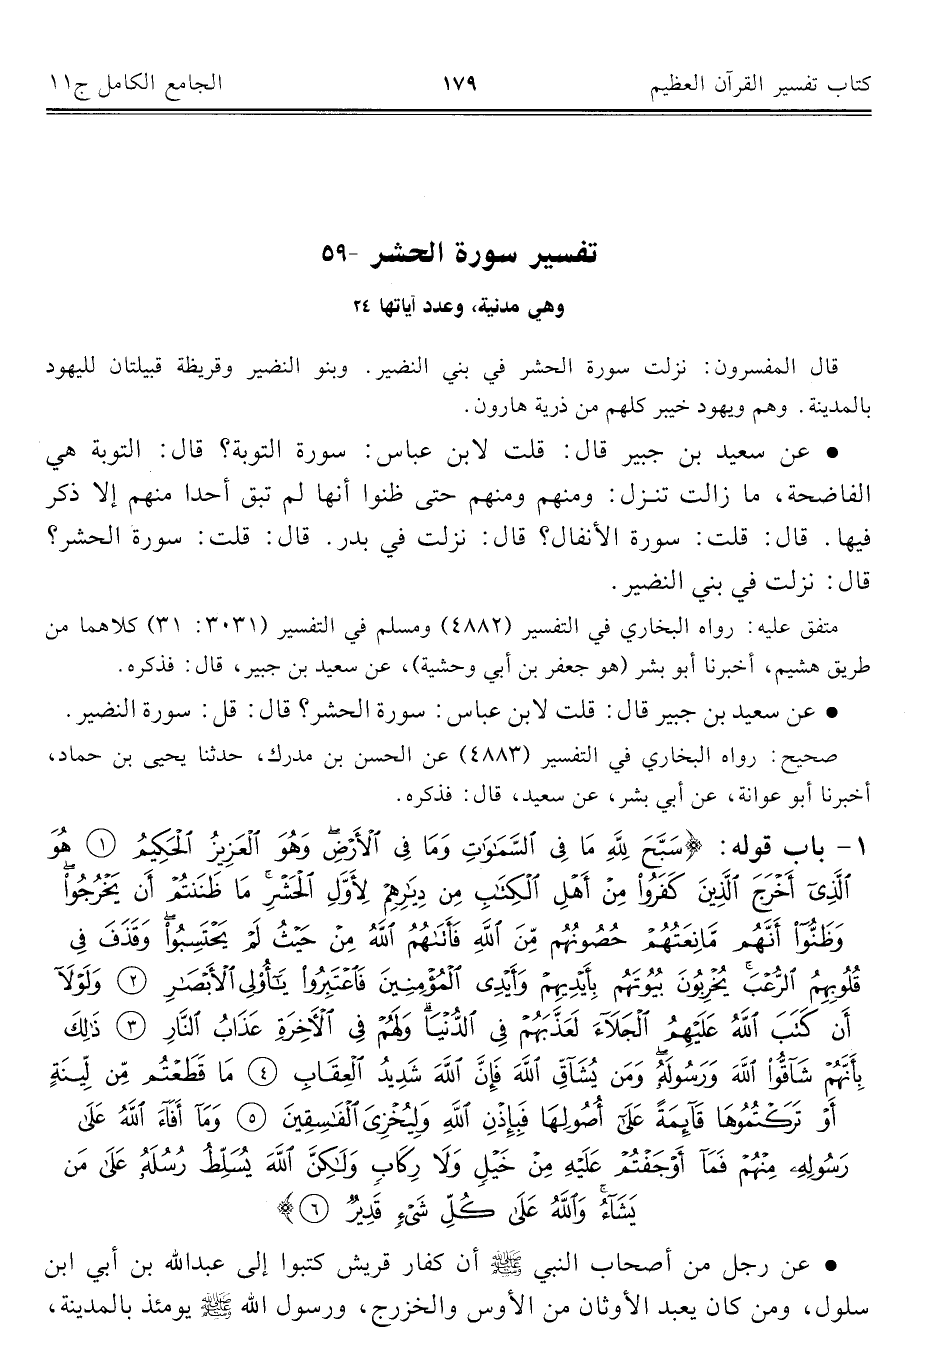 كتاب تفسير القرآن العظيم ١٧٩ الجامع الكامل ج١١
تفسير سورة الحشر -٥٩
وهي مدنية، وعدد آياتها ٢٤
قال المفسرون: نزلت سورة الحشر في بني النضير. وبنو النضير وقريظة قبيلتان لليهود
بالمدينة. وهم ويهود خيبر كلهم من ذرية هارون.
• عن سعيد بن جبير قال: قلت لابن عباس: سورة التوبة؟ قال: التوبة هي
الفاضحة، ما زالت تنـزل: ومنهم ومنهم حتى ظنوا أنها لم تبق أحدا منهم إلا ذكر
فيها. قال: قلت: سورة الأنفال؟ قال: نزلت في بدر. قال: قلت: سورة الحشر؟
قال: نزلت في بني النضير.
متفق عليه: رواه البخاري في التفسير (٤٨٨٢) ومسلم في التفسير (٣٠٣١: ٣١) كلاهما من
طريق هشيم، أخبرنا أبو بشر (هو جعفر بن أبي وحشية)، عن سعيد بن جبير، قال: فذكره.
• عن سعيد بن جبير قال: قلت لابن عباس: سورة الحشر؟ قال: قل: سورة النضير.
صحيح: رواه البخاري في التفسير (٤٨٨٣) عن الحسن بن مدرك، حدثنا يحيى بن حماد،
أخبرنا أبو عوانة، عن أبي بشر، عن سعيد، قال: فذكره.
١- باب قوله: ﴿سَبَّحَ لِلَّهِ مَا فِي ٱلسَّمَٰوَٰتِ وَمَا فِي ٱلۡأَرۡضِۖ وَهُوَ ٱلۡعَزِيزُ ٱلۡحَكِيمُ ١ هُوَ
ٱلَّذِيٓ أَخۡرَجَ ٱلَّذِينَ كَفَرُواْ مِنۡ أَهۡلِ ٱلۡكِتَٰبِ مِن دِيَٰرِهِمۡ لِأَوَّلِ ٱلۡحَشۡرِۚ مَا ظَنَنتُمۡ أَن يَخۡرُجُواْۖ
وَظَنُّوٓاْ أَنَّهُم مَّانِعَتُهُمۡ حُصُونُهُم مِّنَ ٱللَّهِ فَأَتَىٰهُمُ ٱللَّهُ مِنۡ حَيۡثُ لَمۡ يَحۡتَسِبُواْۖ وَقَذَفَ فِي
قُلُوبِهِمُ ٱلرُّعۡبَۚ يُخۡرِبُونَ بُيُوتَهُم بِأَيۡدِيهِمۡ وَأَيۡدِي ٱلۡمُؤۡمِنِينَ فَٱعۡتَبِرُواْ يَٰٓأُوْلِي ٱلۡأَبۡصَٰرِ ٢ وَلَوۡلَآ
أَن كَتَبَ ٱللَّهُ عَلَيۡهِمُ ٱلۡجَلَآءَ لَعَذَّبَهُمۡ فِي ٱلدُّنۡيَاۖ وَلَهُمۡ فِي ٱلۡأٓخِرَةِ عَذَابُ ٱلنَّارِ ٣ ذَٰلِكَ
بِأَنَّهُمۡ شَآقُّواْ ٱللَّهَ وَرَسُولَهُۥۖ وَمَن يُشَآقِّ ٱللَّهَ فَإِنَّ ٱللَّهَ شَدِيدُ ٱلۡعِقَابِ ٤ مَا قَطَعۡتُم مِّن لِّينَةٍ
أَوۡ تَرَكۡتُمُوهَا قَآئِمَةً عَلَىٰٓ أُصُولِهَا فَبِإِذۡنِ ٱللَّهِ وَلِيُخۡزِيَ ٱلۡفَٰسِقِينَ ٥ وَمَآ أَفَآءَ ٱللَّهُ عَلَىٰ
رَسُولِهِۦ مِنۡهُمۡ فَمَآ أَوۡجَفۡتُمۡ عَلَيۡهِ مِنۡ خَيۡلٖ وَلَا رِكَابٖ وَلَٰكِنَّ ٱللَّهَ يُسَلِّطُ رُسُلَهُۥ عَلَىٰ مَن
يَشَآءُۚ وَٱللَّهُ عَلَىٰ كُلِّ شَيۡءٖ قَدِيرٞ ٦﴾
• عن رجل من أصحاب النبي ﷺ أن كفار قريش كتبوا إلى عبدالله بن أبي ابن
سلول، ومن كان يعبد الأوثان من الأوس والخزرج، ورسول الله ﷺ يومئذ بالمدينة،